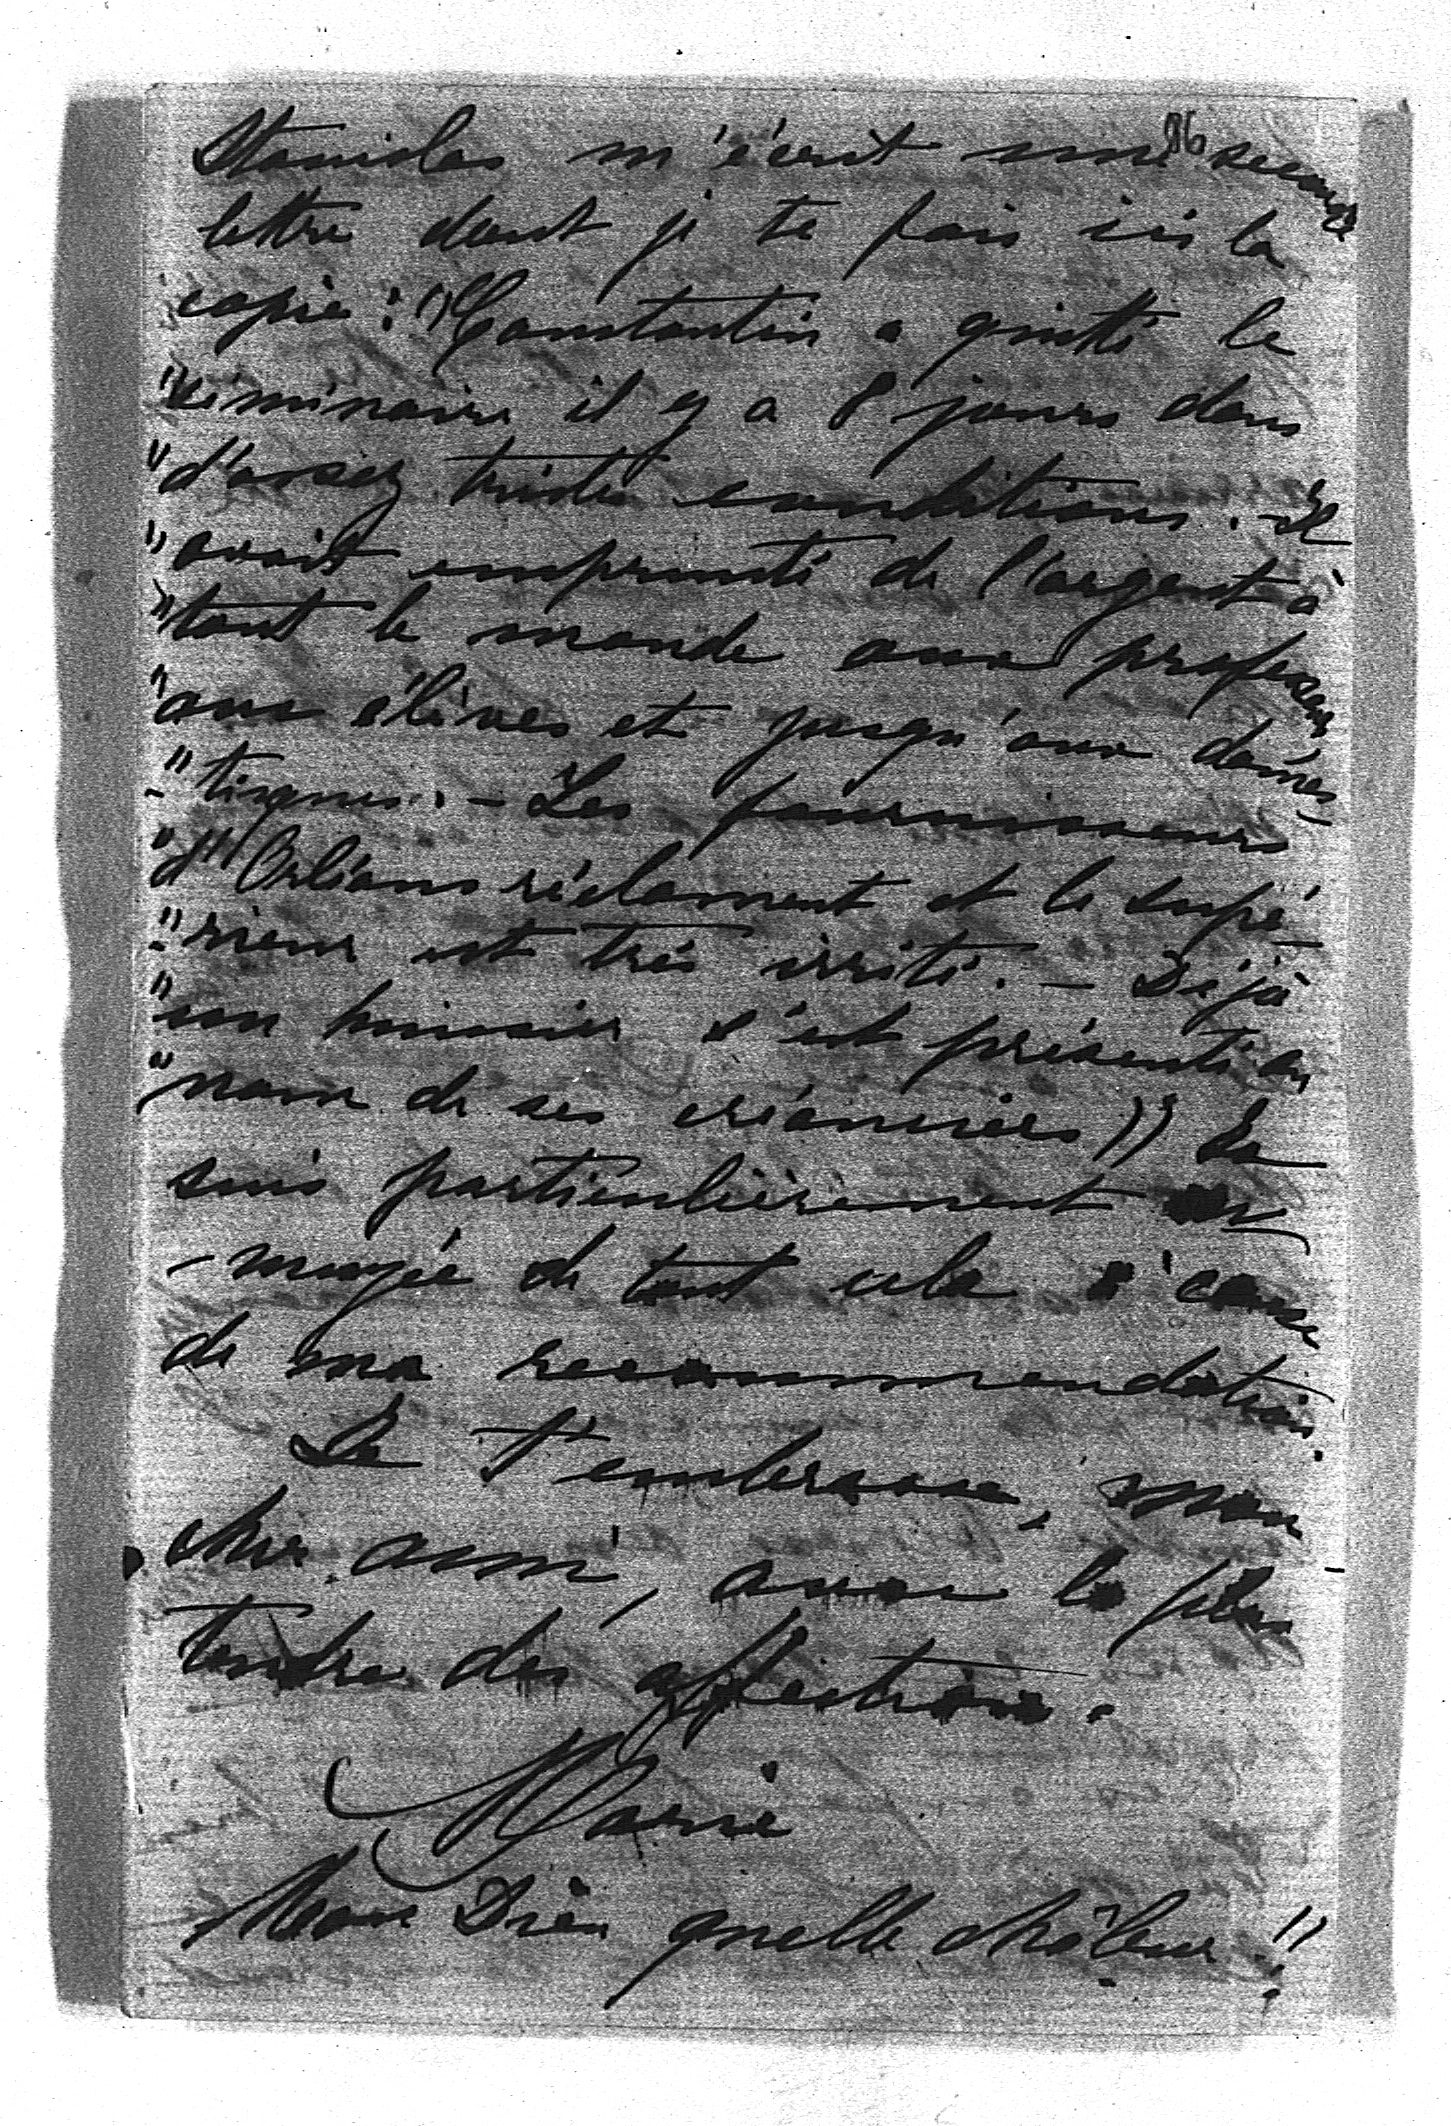 86
Stanislas m'écrit une seconde
lettre dont je te fais ici la
copie : "Constantin a quitté le
"séminaire il y a 8 jours dans
"d'assez tristes conditions. Il
"avait emprunté de l'argent à
"tout le monde aux professeurs
"aux élèves et jusqu'aux domes-
"-tiques. - Les fournisseurs
"d'Orléans réclament et le supé-
"-rieur est très irrité. - Déjà
"un huissier s'est présenté au
"nom de ses créanciers" Je
suis particulièrement en
-nuyée de tout cela à cause
de ma recommendation.
Je t'embrasse, mon
cher ami, avec la plus
tendre des affections.
Marie
Mon Dieu quelle châleur !!